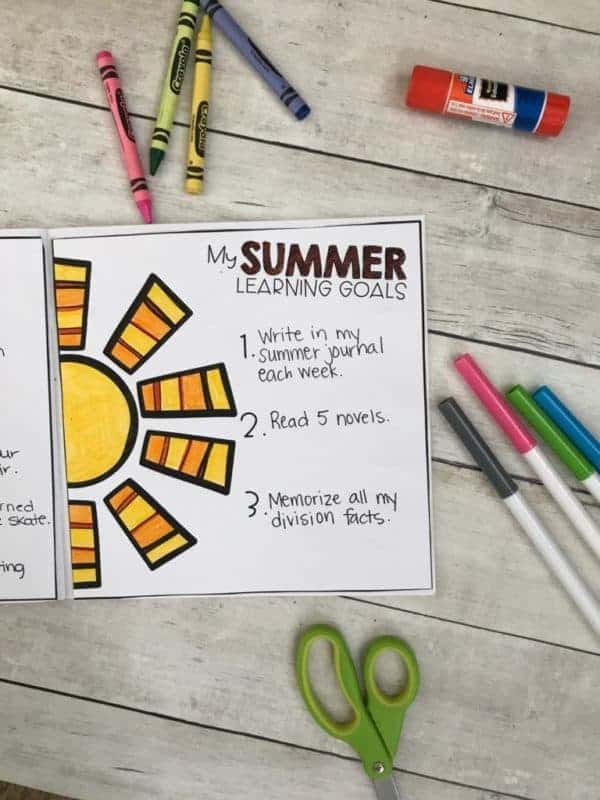 Crayola
My SUMMER
LEARNING GOALS
1. Write in my
summer journal
each week.
2. Read 5 novels.
3. Memorize all my
division facts.
ur
ir.
rned
skate.
ing